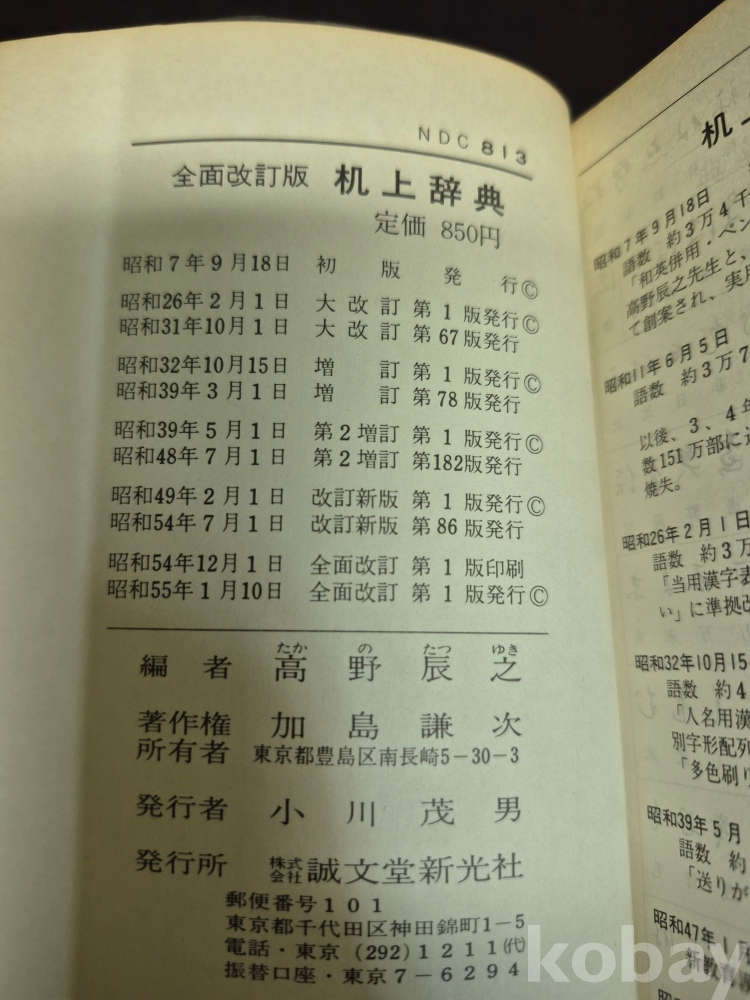 NDC 813
全面改訂版 机上辞典
定価 850円
昭和7年9月18日 初版発行©
昭和26年2月1日 大改訂 第1版発行©
昭和31年10月1日 大改訂 第67版発行
昭和32年10月15日 増訂 第1版発行©
昭和39年3月1日 増訂 第78版発行
昭和39年5月1日 第2増訂 第1版発行©
昭和48年7月1日 第2増訂 第182版発行
昭和49年2月1日 改訂新版 第1版発行©
昭和54年7月1日 改訂新版 第86版発行
昭和54年12月1日 全面改訂 第1版印刷
昭和55年1月10日 全面改訂 第1版発行©
たか の たつ ゆき
編者 高野辰之
著作権 加島謙次
所有者 東京都豊島区南長崎5-30-3
発行者 小川茂男
発行所 株式会社 誠文堂新光社
郵便番号101
東京都千代田区神田錦町1-5
電話・東京 (292) 1211(代)
振替口座・東京7-6294
机上
昭和7年9月18日
語数 約3万4千
「和英併用・ペン
高野辰之先生と、
て創案され、実用
昭和11年6月5日
語数 約3万7
以後、3、4年
数151万部に
焼失。
昭和26年2月1日
語数 約3万
「当用漢字表
い」に準拠改
昭和32年10月15
語数 約4
「人名用漢
別字形配列
「多色刷り
昭和39年5月
語数 約
「送りが
昭和47年
新教育
kobay